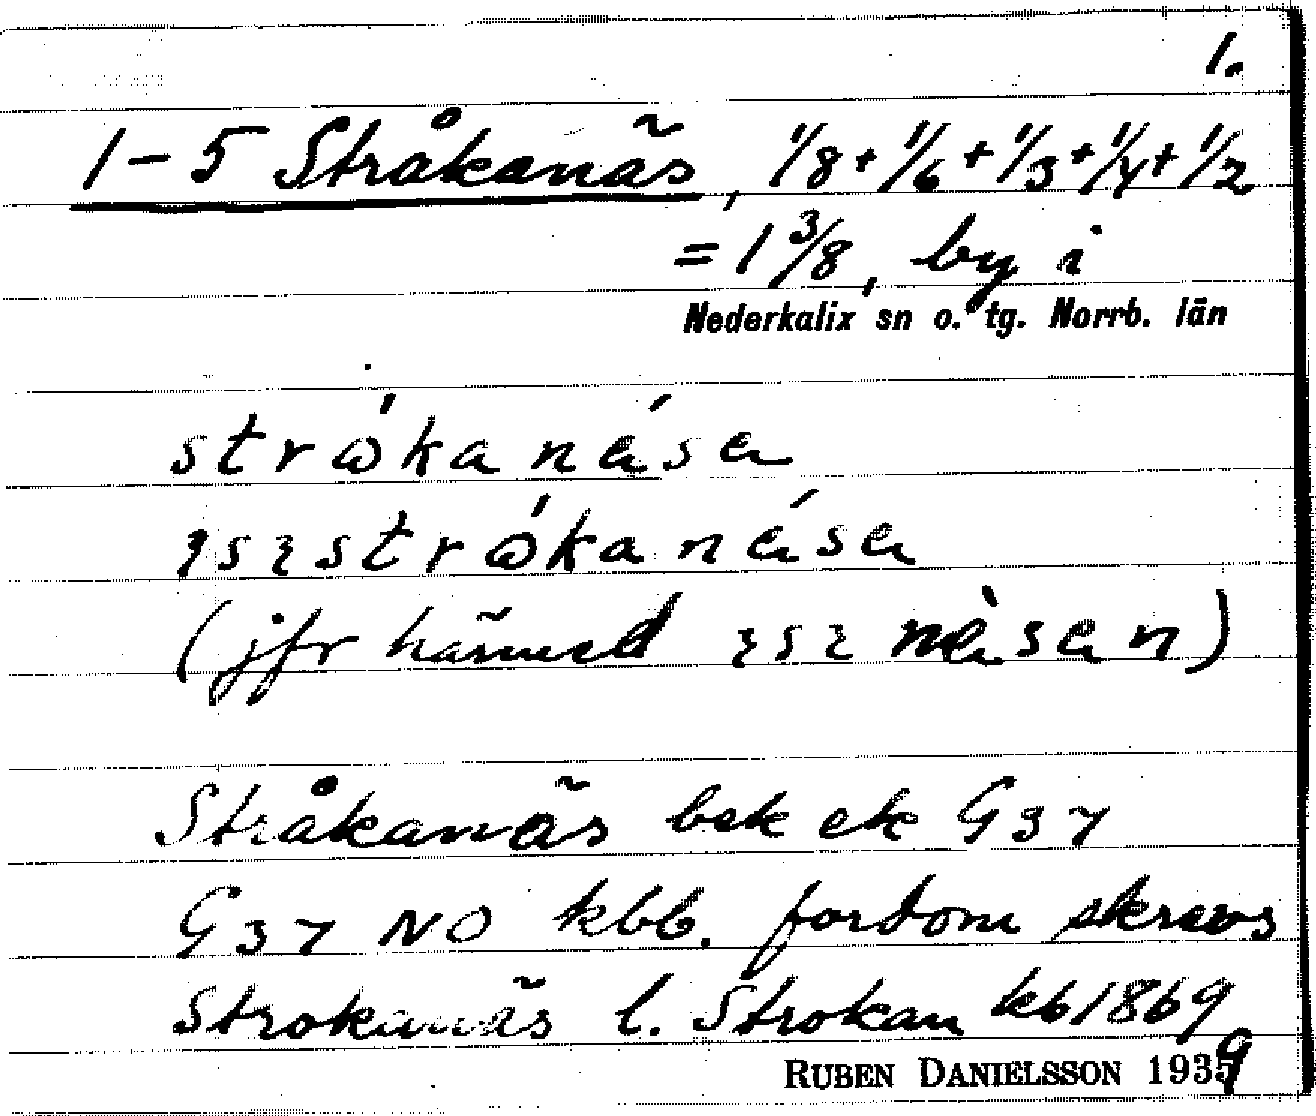 1.
1-5 Stråkanäs, 1/8+1/6+1/3+1/4+1/2
=1 3/8, by i
Nederkalix sn o. tg. Norrb. län
stråkanäsa
ısıstråkanäsa
(jfr härmed ısı näsan)
Stråkanäs bek ek G37
G37 NO kbb. fordom skrevs
Strokanäs l. Strokan kb1869
RUBEN DANIELSSON 1939